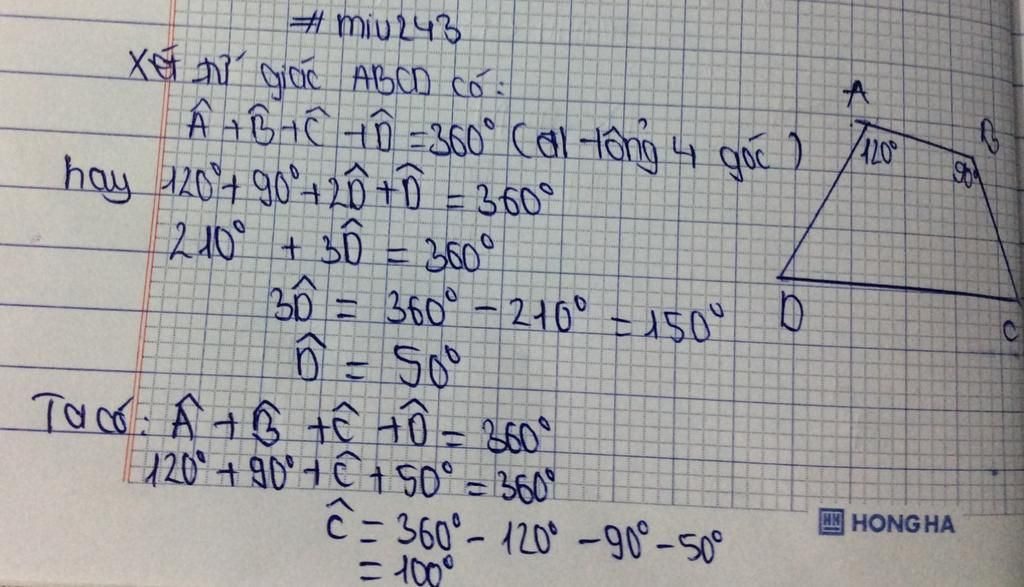 # miu243
Xét tứ giác ABCD có:
Â + B̂ + Ĉ + D̂ = 360° (đl tổng 4 góc)
hay 120° + 90° + 2D̂ + D̂ = 360°
210° + 3D̂ = 360°
3D̂ = 360° - 210° = 150°
D̂ = 50°
Ta có: Â + B̂ + Ĉ + D̂ = 360°
120° + 90° + Ĉ + 50° = 360°
Ĉ = 360° - 120° - 90° - 50°
= 100°
A
B
120°
90°
D
C
HH HONG HA